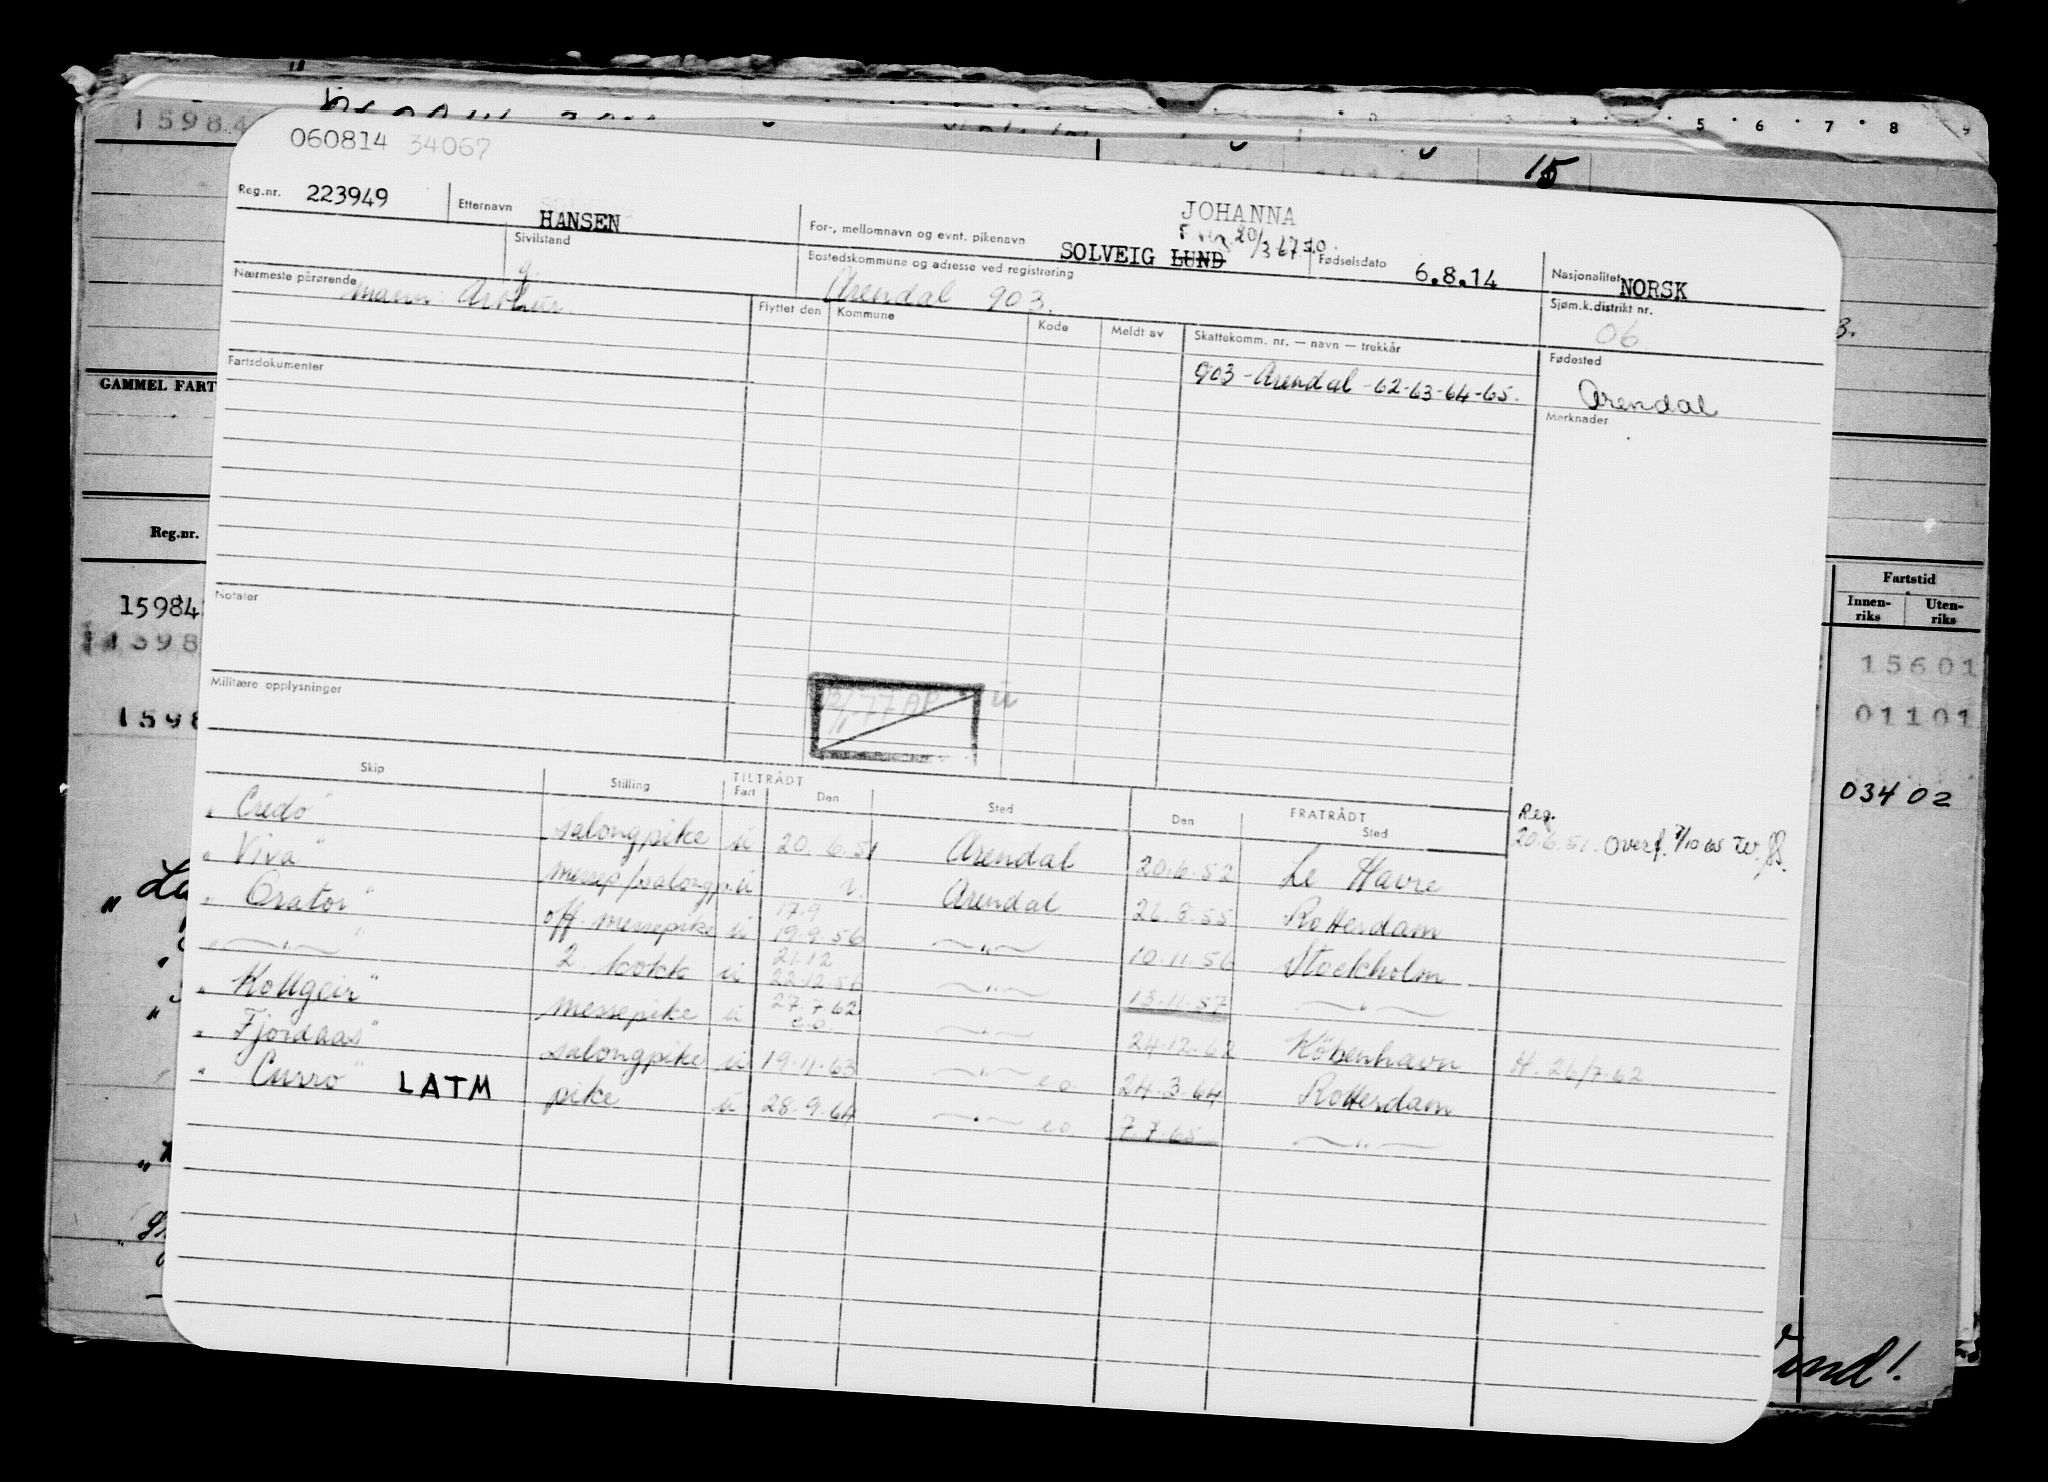 1598
1 2 3 4 5 6 7 8 9
15
060814 34067
Reg.nr. 223949
Etternavn HANSEN
For-, mellomnavn og evnt. pikenavn SOLVEIG LUND
JOHANNA
20/3 67
Fødselsdato 6.8.14
Nasjonalitet NORSK
Sivilstand g.
Bostedskommune og adresse ved registrering
Arendal 903.
Sjøm.k.distrikt nr.
06
Nærmeste pårørende
mann: Arthur.
Flyttet den Kommune Kode Meldt av
Skattekomm. nr. — navn — trekkår
903 - Arendal - 62-63-64-65.
Fødested
Arendal
Merknader
Fartsdokumenter
GAMMEL FART
Reg.nr.
15984
1598
Notater
Militære opplysninger
Fartstid
Innen-riks Uten-riks
15601
01101
034 02
Skip Stilling TILTRÅDT Fart Den Sted FRATRÅDT Den Sted
Reg.
20.6.51. Overf. 7/10 65
„ Credo" salongpike u 20.6.51 Arendal 20.6.52 Le Havre
„ Viva" messep/salongp. u Arendal 26.3.55 Rotterdam
„ Orator" off. messepike u 17.9 19.9.56 —„— 10.11.56 Stockholm
„ —„— " 2. kokk u 21.12 22.12.56 —„— 13.11.57 —„—
„ Hollgeir" messepike u 27.7.62 e.o. —„— 24.12.62 Köbenhavn H. 26/7-62
„ Fjordaas" salongpike u 19.11.63 —„— e.o. 24.3.64 Rotterdam
„ Curro" LATM pike u 28.9.64 —„— e.o. 7.7.65 —„—